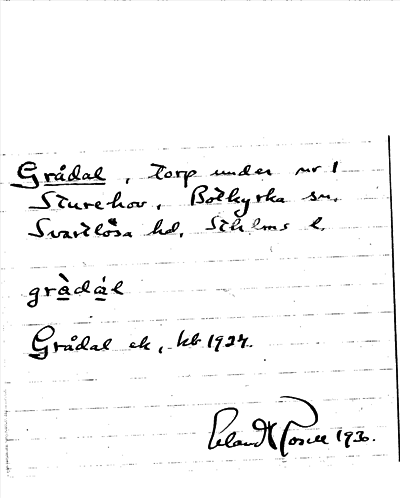 Grådal, torp under nr 1
Sturehov, Botkyrka sn,
Svartlösa hd, Sthlms l.
gràdál
Grådal ek, kb 1924.
Erland Rosell 1930.